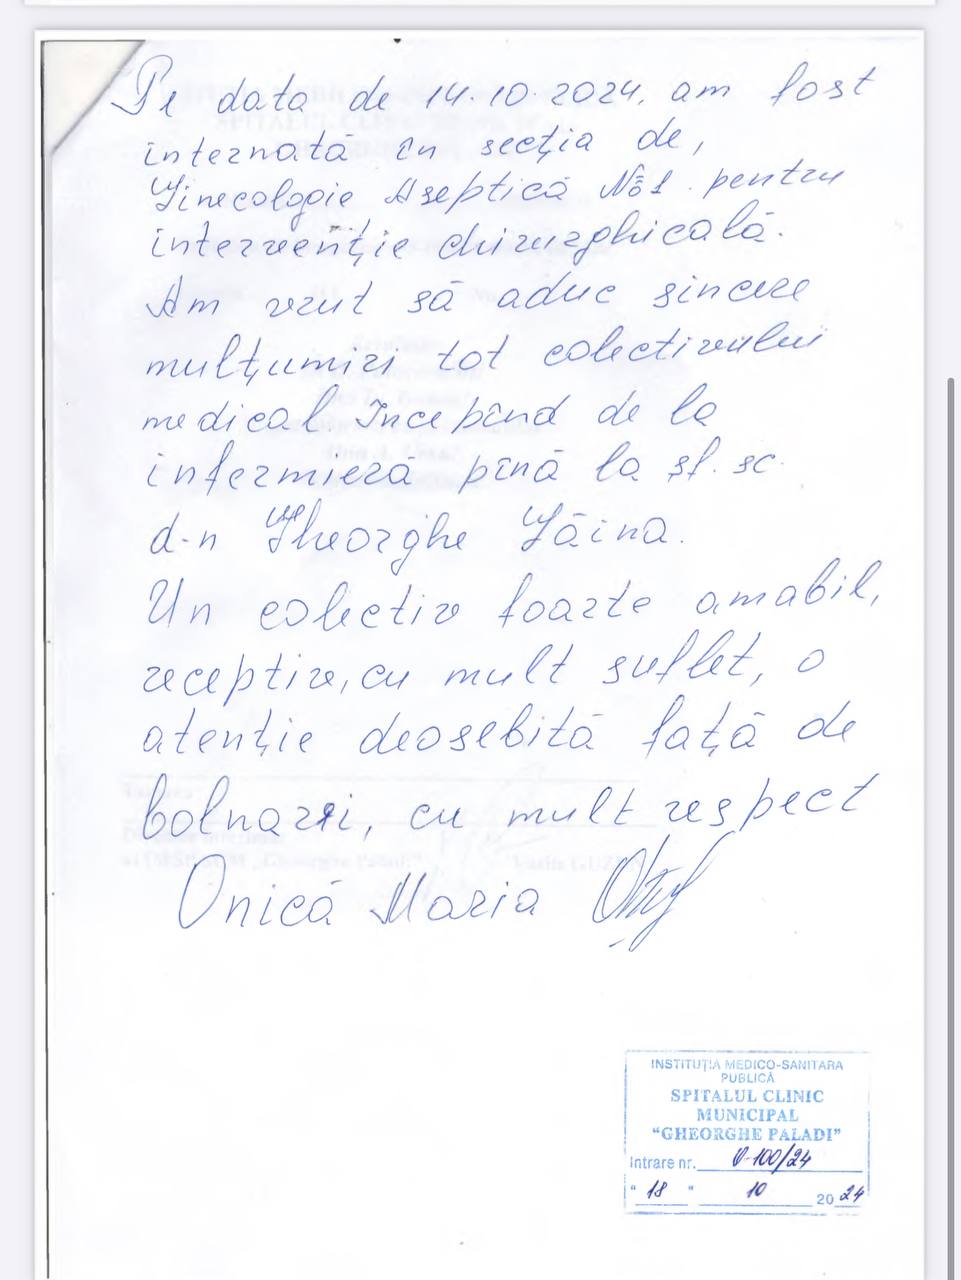 Pe data de 14.10.2024, am fost
internată în secția de,
Ginecologie Aseptică №1 pentru
intervenție chirurghicală.
Am vrut să aduc sincere
mulțumiri tot colectivului
medical începînd de la
infermieră pînă la șf. sc.
d-n Gheorghe Găina.
Un colectiv foarte amabil,
receptiv, cu mult suflet, o
atenție deosebită față de
bolnavi, cu mult respect
Onică Maria
INSTITUȚIA MEDICO-SANITARA
PUBLICĂ
SPITALUL CLINIC
MUNICIPAL
"GHEORGHE PALADI"
Intrare nr. O-100/24
"18" 10 2024